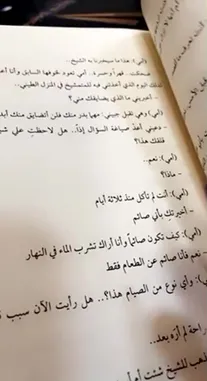 (أمي): هذا ما سيخبرنا به الشيخ..
فضحكت.. قهراً وحسرة.. أمي تعود لخوفها السابق وأنا أعـ
لذلك اليوم الذي أخذتني فيه للمتمشيخ في المنزل الطيني..
- أخبريني ما الذي يضايقك مني؟
(أمي) وهي تقبل جبيني: مهما بدر منك فلن أتضايق منك أبد
- دعيني أعد صياغة السؤال إذاً.. هل لاحظتِ علي شي
قلقك هذا؟
(أمي): نعم..
- ماذا؟
(أمي): أنت لم تأكل منذ ثلاثة أيام
- أخبرتكِ بأني صائم
(أمي): كيف تكون صائماً وأنا أراك تشرب الماء في النهار
- نعم فأنا صائم عن الطعام فقط
(أمي): وأي نوع من الصيام هذا؟.. هل رأيت الآن سبب
راحة لم أرَه بعد..
ذهب للشيخ شئت أم أ